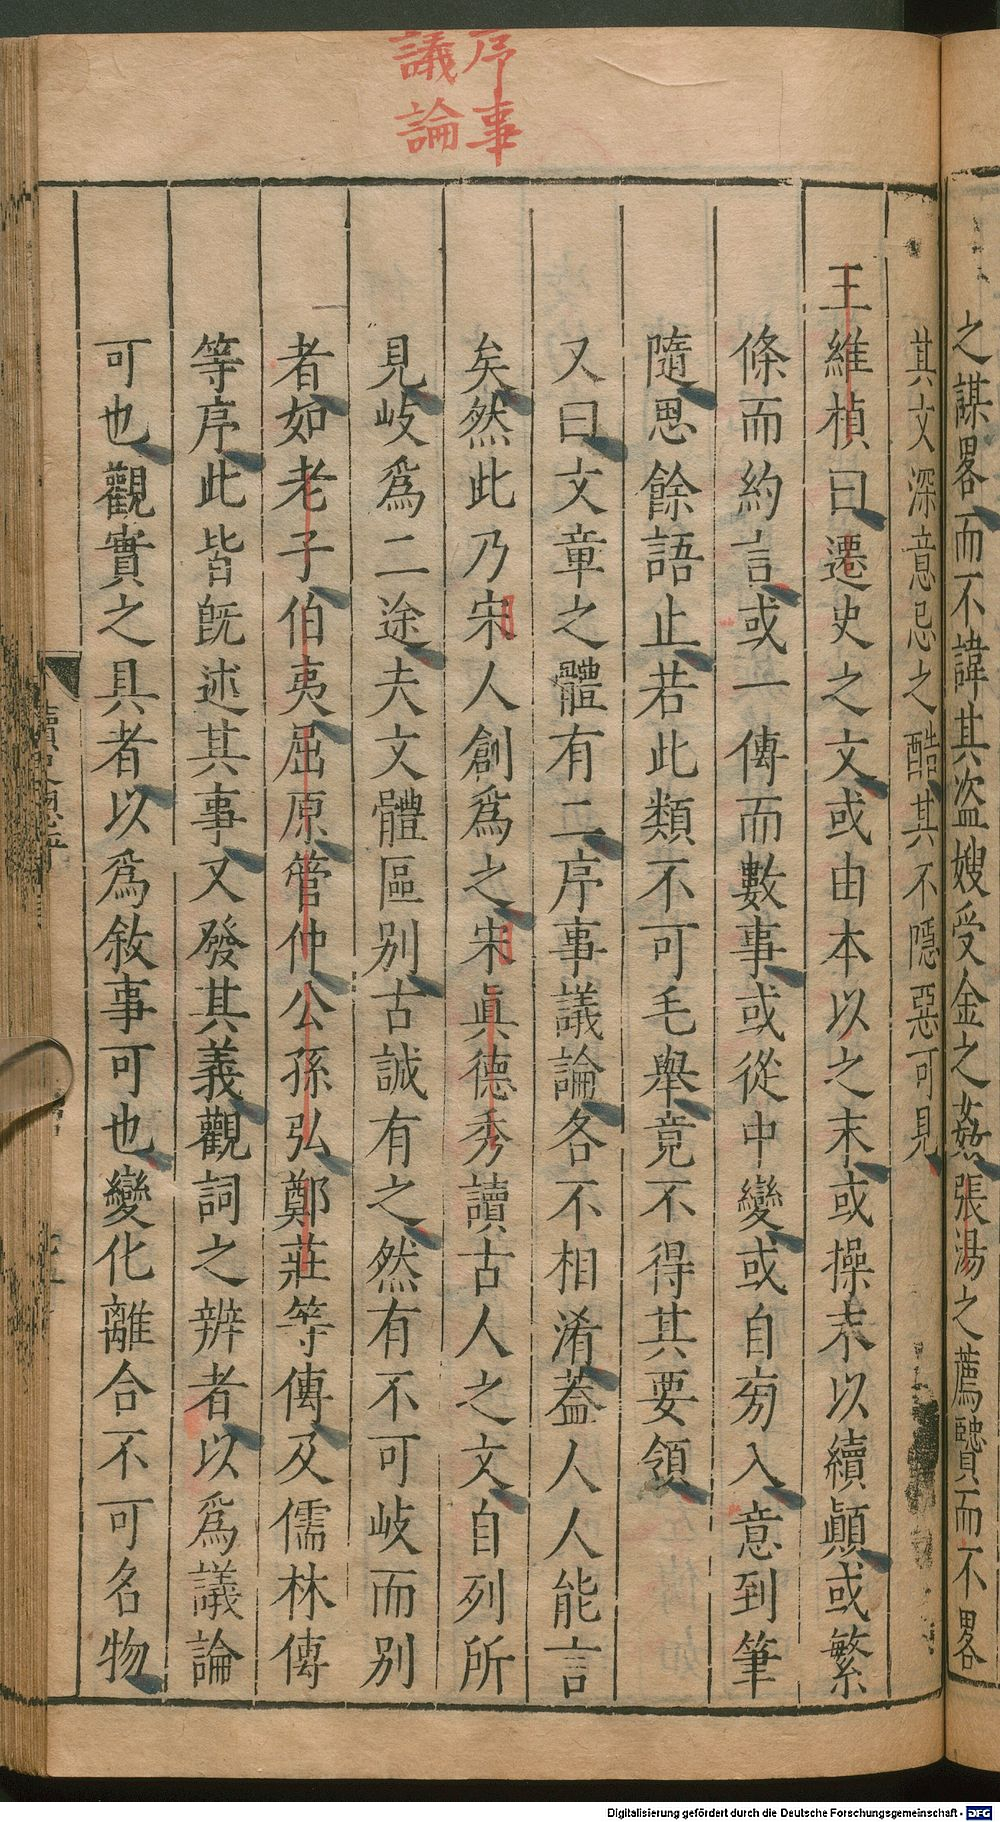 序事
議論
之謀畧而不諱其盗嫂受金之姦張湯之薦賢而不畧
其文深意忌之酷其不隱惡可見
王維楨曰遷史之文或由本以之末或操末以續顛或繁
條而約言或一傳而數事或從中變或自旁入意到筆
隨思餘語止若此類不可毛舉竟不得其要領
又曰文章之體有二序事議論各不相淆葢人人能言
矣然此乃宋人創爲之宋眞德秀讀古人之文自列所
見岐爲二途夫文體區别古誠有之然有不可岐而别
者如老子伯夷屈原管仲公孫弘鄭莊等傳及儒林傳
等序此皆旣述其事又發其義觀詞之辨者以爲議論
可也觀實之具者以爲敘事可也變化離合不可名物
Digitalisierung gefördert durch die Deutsche Forschungsgemeinschaft - DFG